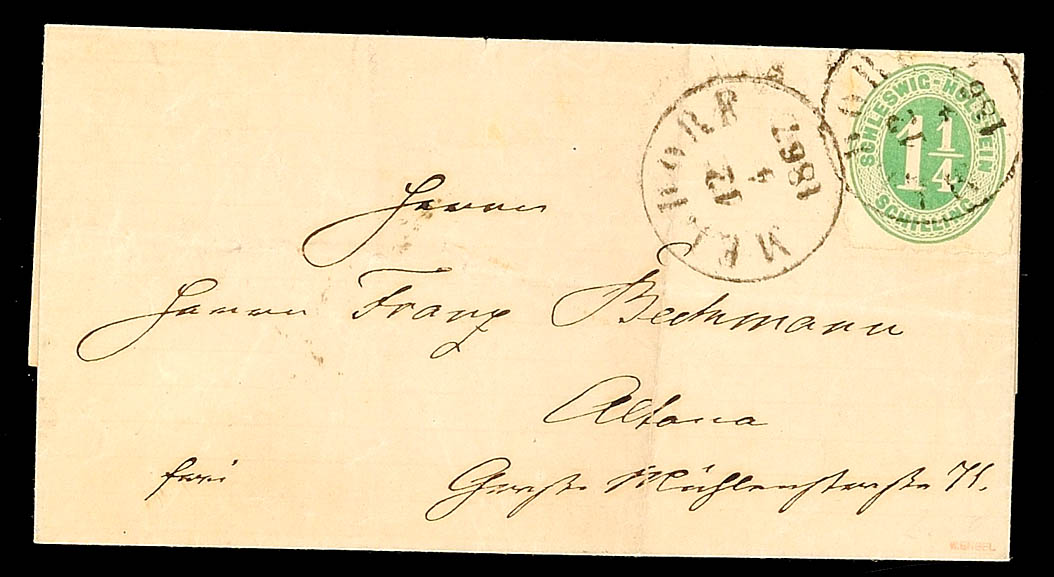 SCHLESWIG-HOLSTEIN
1 1/4
SCHILLING
MELDORF
12
4
1867
Herrn
Herrn Franz Beckmann
Altona
frei
Große Mühlenstraße 71.